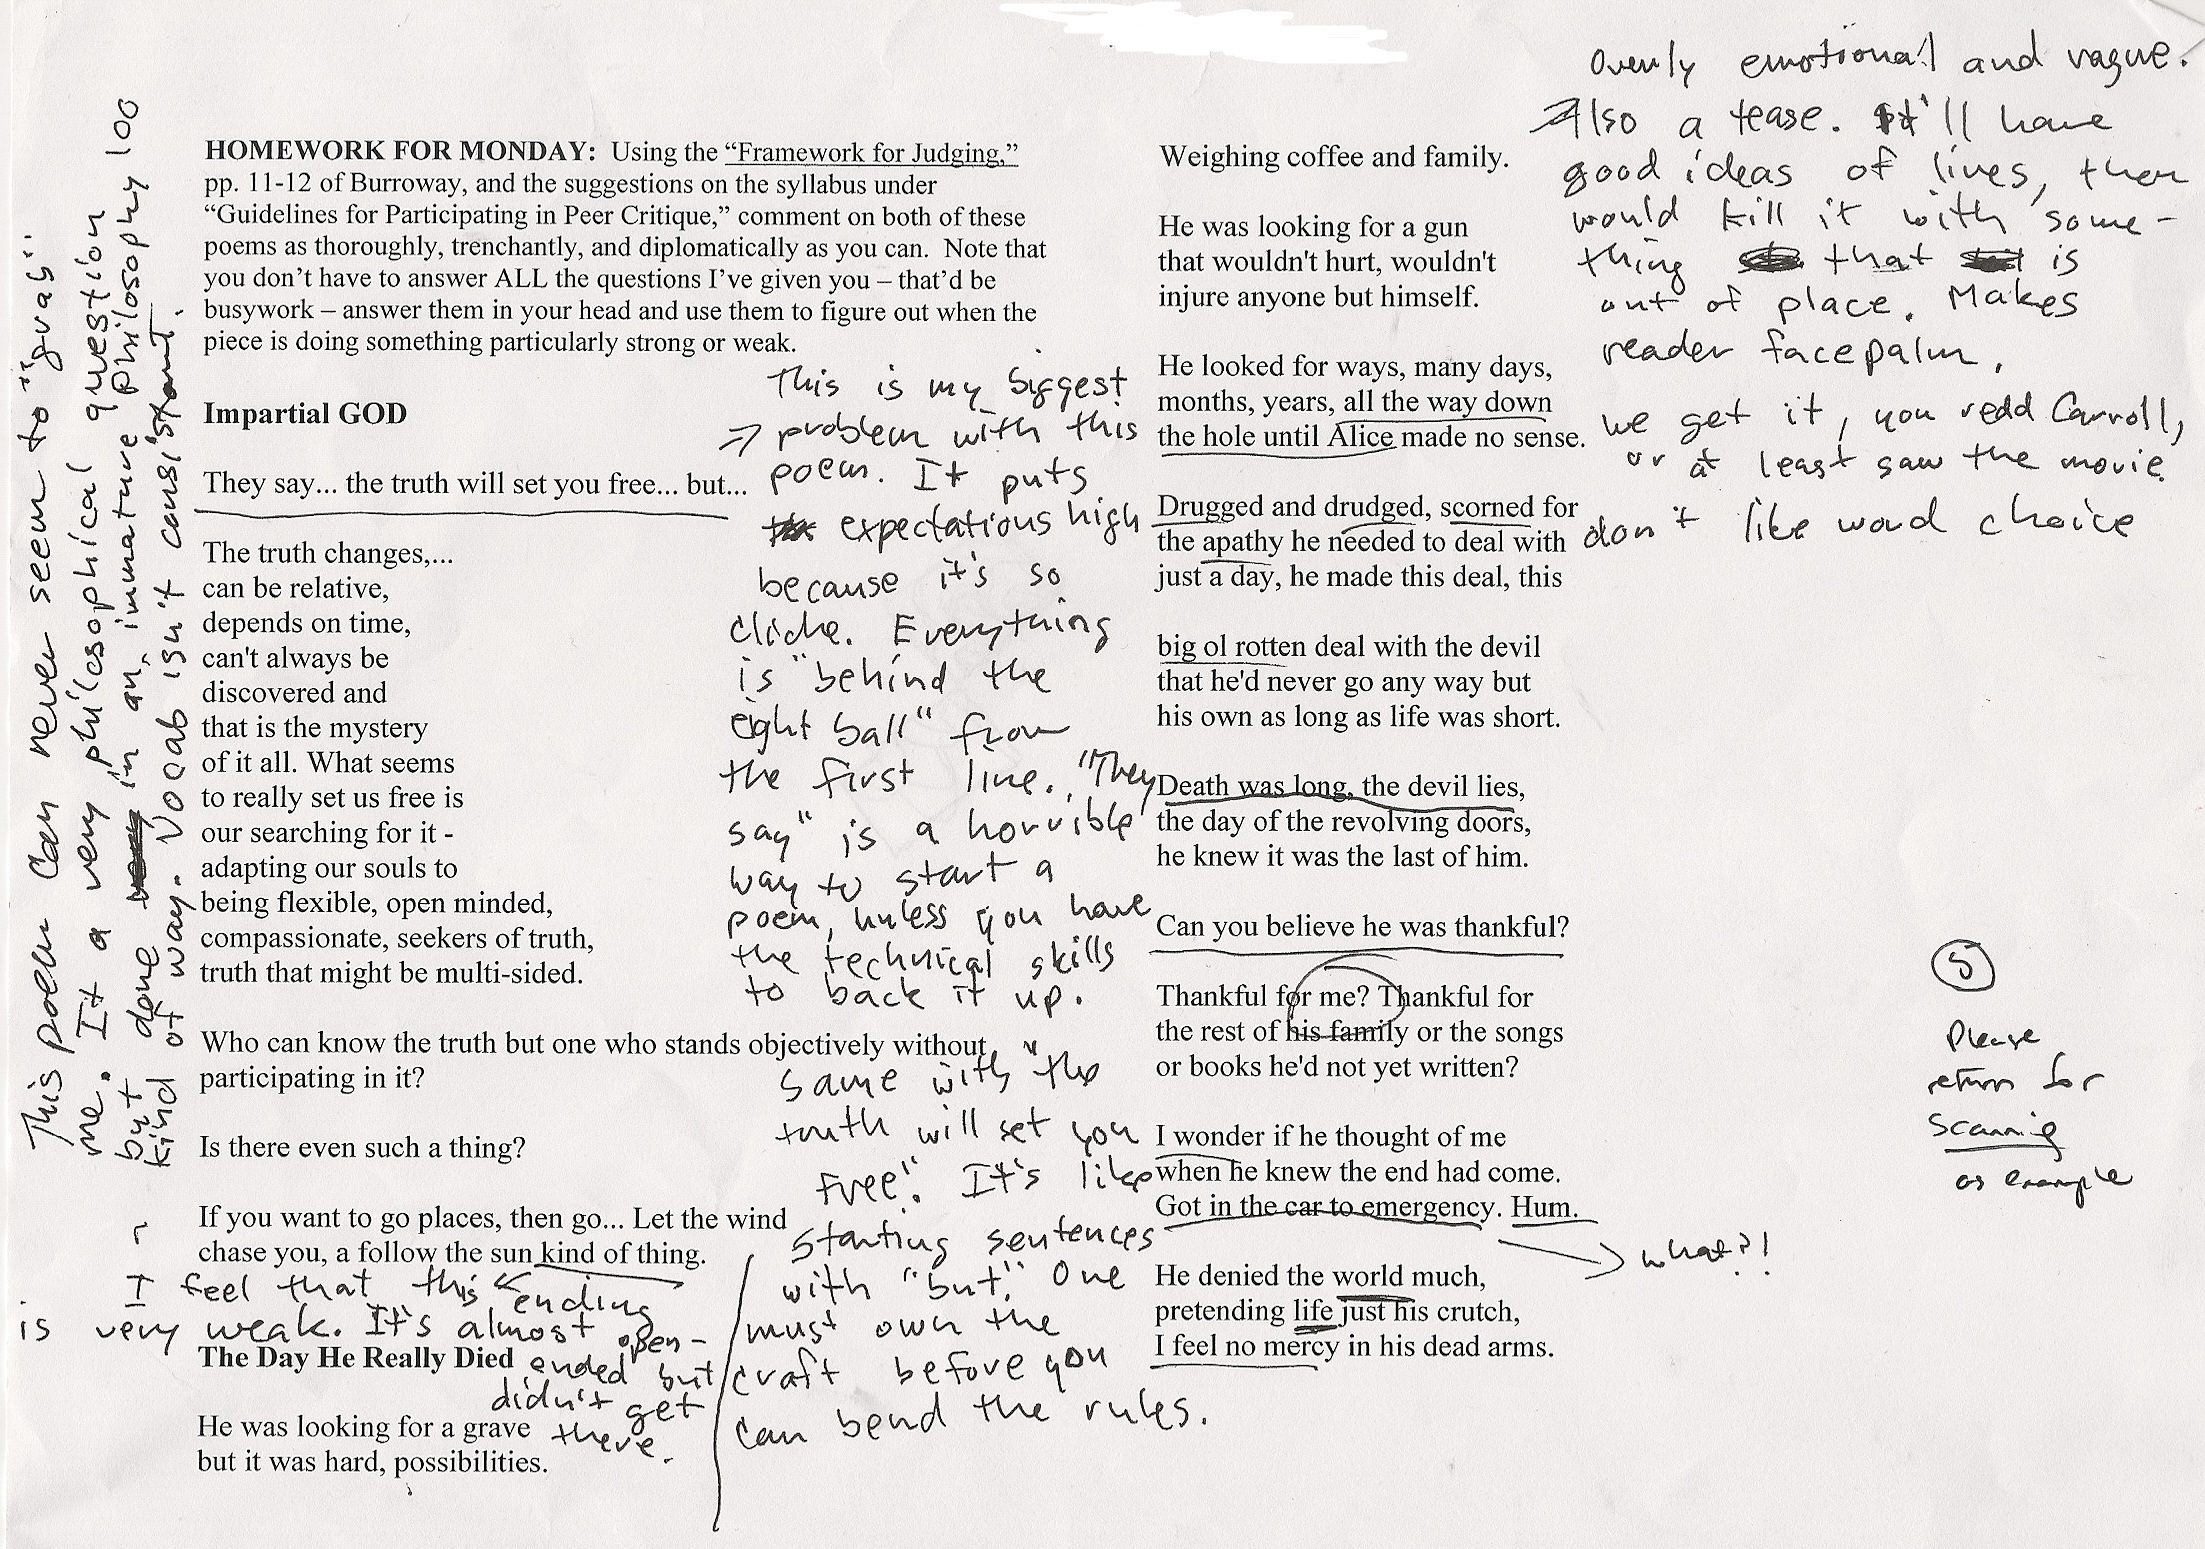 HOMEWORK FOR MONDAY: Using the “Framework for Judging,”
pp. 11-12 of Burroway, and the suggestions on the syllabus under
“Guidelines for Participating in Peer Critique,” comment on both of these
poems as thoroughly, trenchantly, and diplomatically as you can. Note that
you don’t have to answer ALL the questions I’ve given you – that’d be
busywork – answer them in your head and use them to figure out when the
piece is doing something particularly strong or weak.
Impartial GOD
They say... the truth will set you free... but...
The truth changes,...
can be relative,
depends on time,
can't always be
discovered and
that is the mystery
of it all. What seems
to really set us free is
our searching for it -
adapting our souls to
being flexible, open minded,
compassionate, seekers of truth,
truth that might be multi-sided.
Who can know the truth but one who stands objectively without
participating in it?
Is there even such a thing?
If you want to go places, then go... Let the wind
chase you, a follow the sun kind of thing.
I feel that this ending
is very weak. It's almost open-
ended but
didn't get
there.
The Day He Really Died
He was looking for a grave
but it was hard, possibilities.
This poem can never seem to "grab"
me. It a very philosophical question
but done in an "immature philosophy 100
kind of way. Vocab isn't consistant.
This is my biggest
problem with this
poem. It puts
expectations high
because it's so
cliche. Everything
is "behind the
eight ball" from
the first line. "They
say" is a horrible
way to start a
poem, unless you have
the technical skills
to back it up.
Same with "the
truth will set you
free". It's like
starting sentences
with "but." One
must own the
craft before you
can bend the rules.
Weighing coffee and family.
He was looking for a gun
that wouldn't hurt, wouldn't
injure anyone but himself.
He looked for ways, many days,
months, years, all the way down
the hole until Alice made no sense.
Drugged and drudged, scorned for
the apathy he needed to deal with
just a day, he made this deal, this
big ol rotten deal with the devil
that he'd never go any way but
his own as long as life was short.
Death was long, the devil lies,
the day of the revolving doors,
he knew it was the last of him.
Can you believe he was thankful?
Thankful for me? Thankful for
the rest of his family or the songs
or books he'd not yet written?
I wonder if he thought of me
when he knew the end had come.
Got in the car to emergency. Hum.
He denied the world much,
pretending life just his crutch,
I feel no mercy in his dead arms.
Overly emotional and vague.
Also a tease. It'll have
good ideas of lives, then
would kill it with some-
thing that is
out of place. Makes
reader facepalm.
we get it, you redd Carroll,
or at least saw the movie.
don't like word choice
what?!
5
Please
return for
scanning
as example